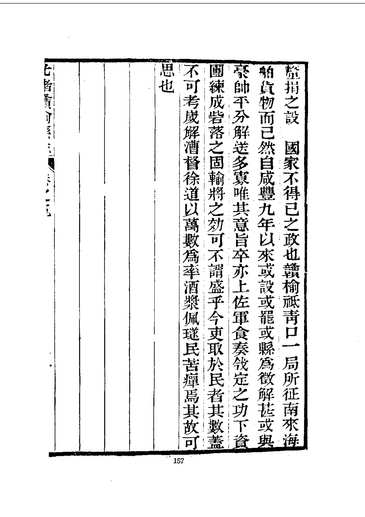 釐捐之設　國家不得已之政也贛榆祗青口一局所征南來海
舶貨物而已然自咸豐九年以來或設或罷或縣為徵解甚或與
豪帥平分解送多寡唯其意旨卒亦上佐軍食奏戡定之功下資
團練成砦落之固輸將之効可不謂盛乎今吏取於民者其數蓋
不可考歲解漕督徐道以萬數為率酒漿佩璲民苦癉焉其故可
思也
157